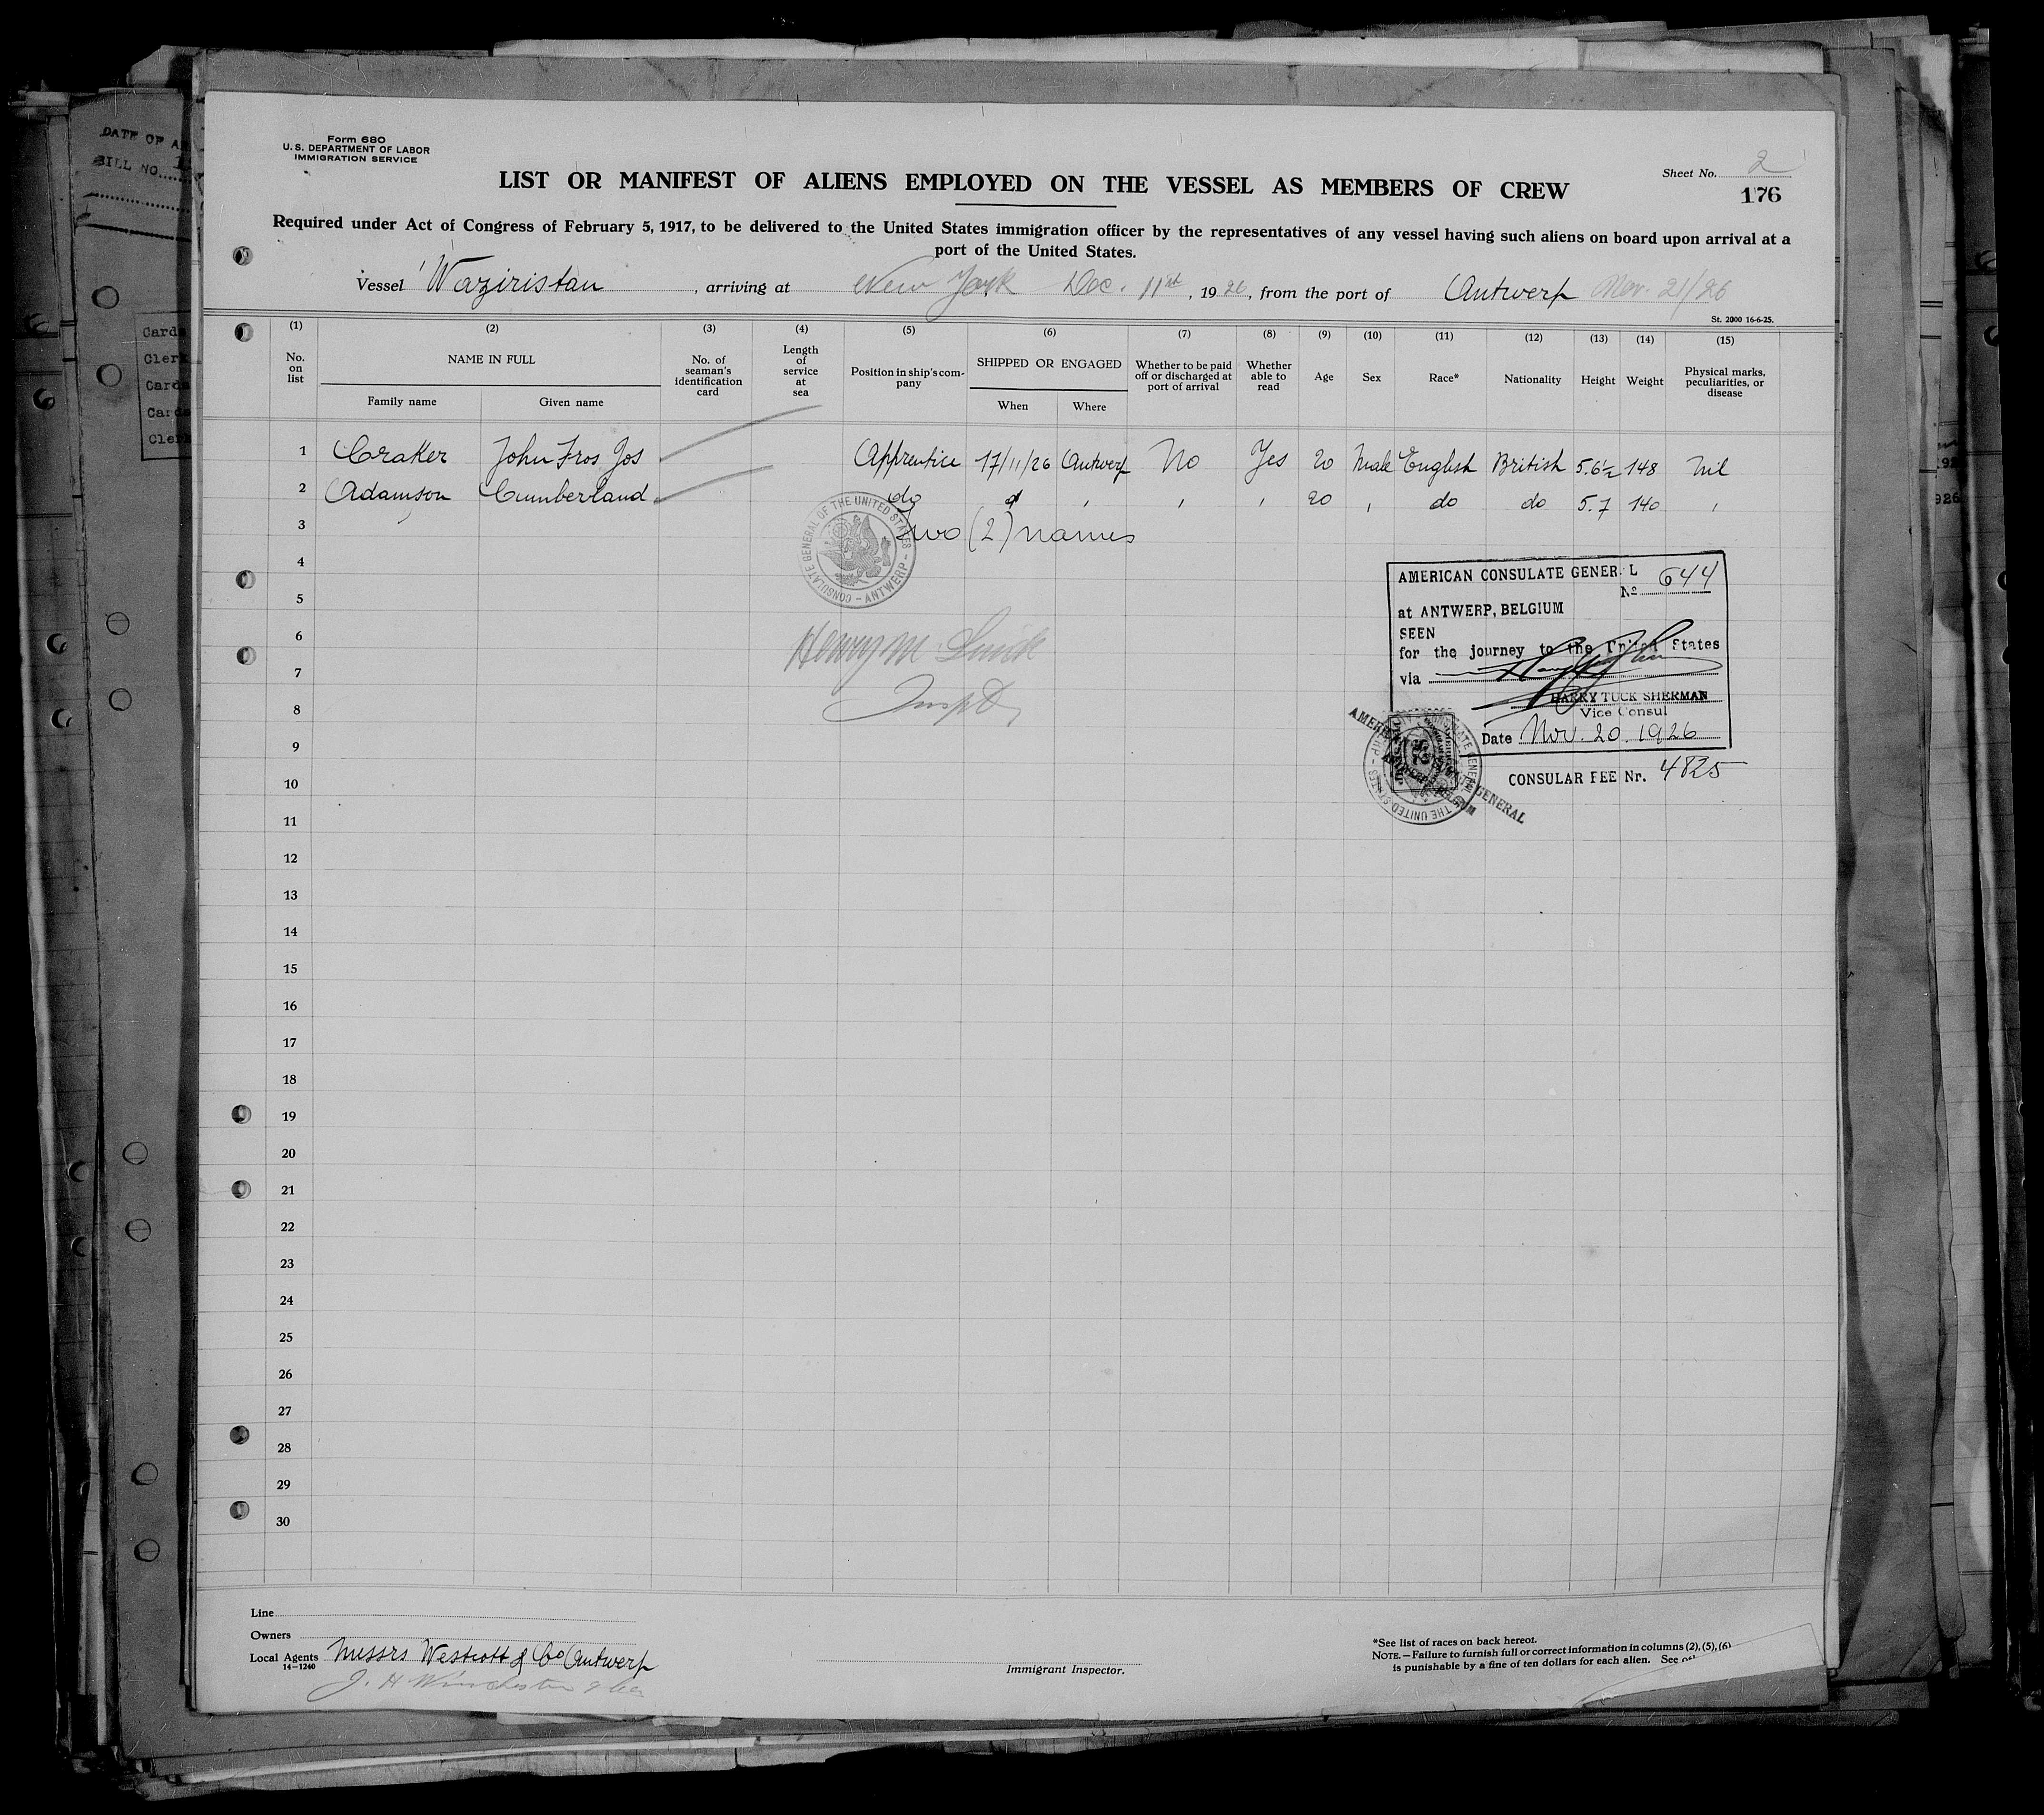 DATE OF
BILL NO.
Cards
Clerk
Cards
Card
Cle
Form 680
U. S. DEPARTMENT OF LABOR
IMMIGRATION SERVICE
Sheet No. 2
176
LIST OR MANIFEST OF ALIENS EMPLOYED ON THE VESSEL AS MEMBERS OF CREW
Required under Act of Congress of February 5, 1917, to be delivered to the United States immigration officer by the representatives of any vessel having such aliens on board upon arrival at a
port of the United States.
Vessel Waziristan, arriving at New York Dec. 11th, 1926, from the port of Antwerp Nov. 21/26
St. 2000 16-6-25.
(1) (2) (3) (4) (5) (6) (7) (8) (9) (10) (11) (12) (13) (14) (15)
No. on list NAME IN FULL Family name Given name No. of seaman's identification card Length of service at sea Position in ship's company SHIPPED OR ENGAGED When Where Whether to be paid off or discharged at port of arrival Whether able to read Age Sex Race* Nationality Height Weight Physical marks, peculiarities, or disease
1 Craker John Fros Jos Apprentice 17/11/26 Antwerp No Yes 20 Male English British 5.6½ 148 Nil
2 Adamson Cumberland do " " " " 20 " do do 5.7 140 "
3 Two (2) names
4
5
6
7
8
9
10
11
12
13
14
15
16
17
18
19
20
21
22
23
24
25
26
27
28
29
30
CONSULATE GENERAL OF THE UNITED STATES - ANTWERP -
Henry M
Insp
AMERICAN CONSULATE GENER L
No 644
at ANTWERP, BELGIUM
SEEN
for the journey to the United States
via
HARRY TUCK SHERMAN
Vice Consul
Date Nov. 20. 1926
CONSULAR FEE Nr. 4825
Line
Owners
Local Agents Messrs Westcott & Co Antwerp
14-1240
J. H Winchester & Co
Immigrant Inspector.
*See list of races on back hereof.
NOTE.—Failure to furnish full or correct information in columns (2), (5), (6)
is punishable by a fine of ten dollars for each alien. See